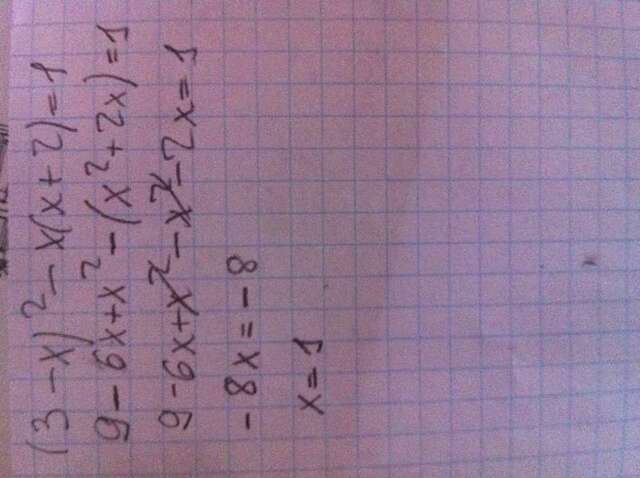 (3-x)²-x(x+2)=1
9-6x+x²-(x²+2x)=1
9-6x+x²-x²-2x=1
-8x=-8
x=1